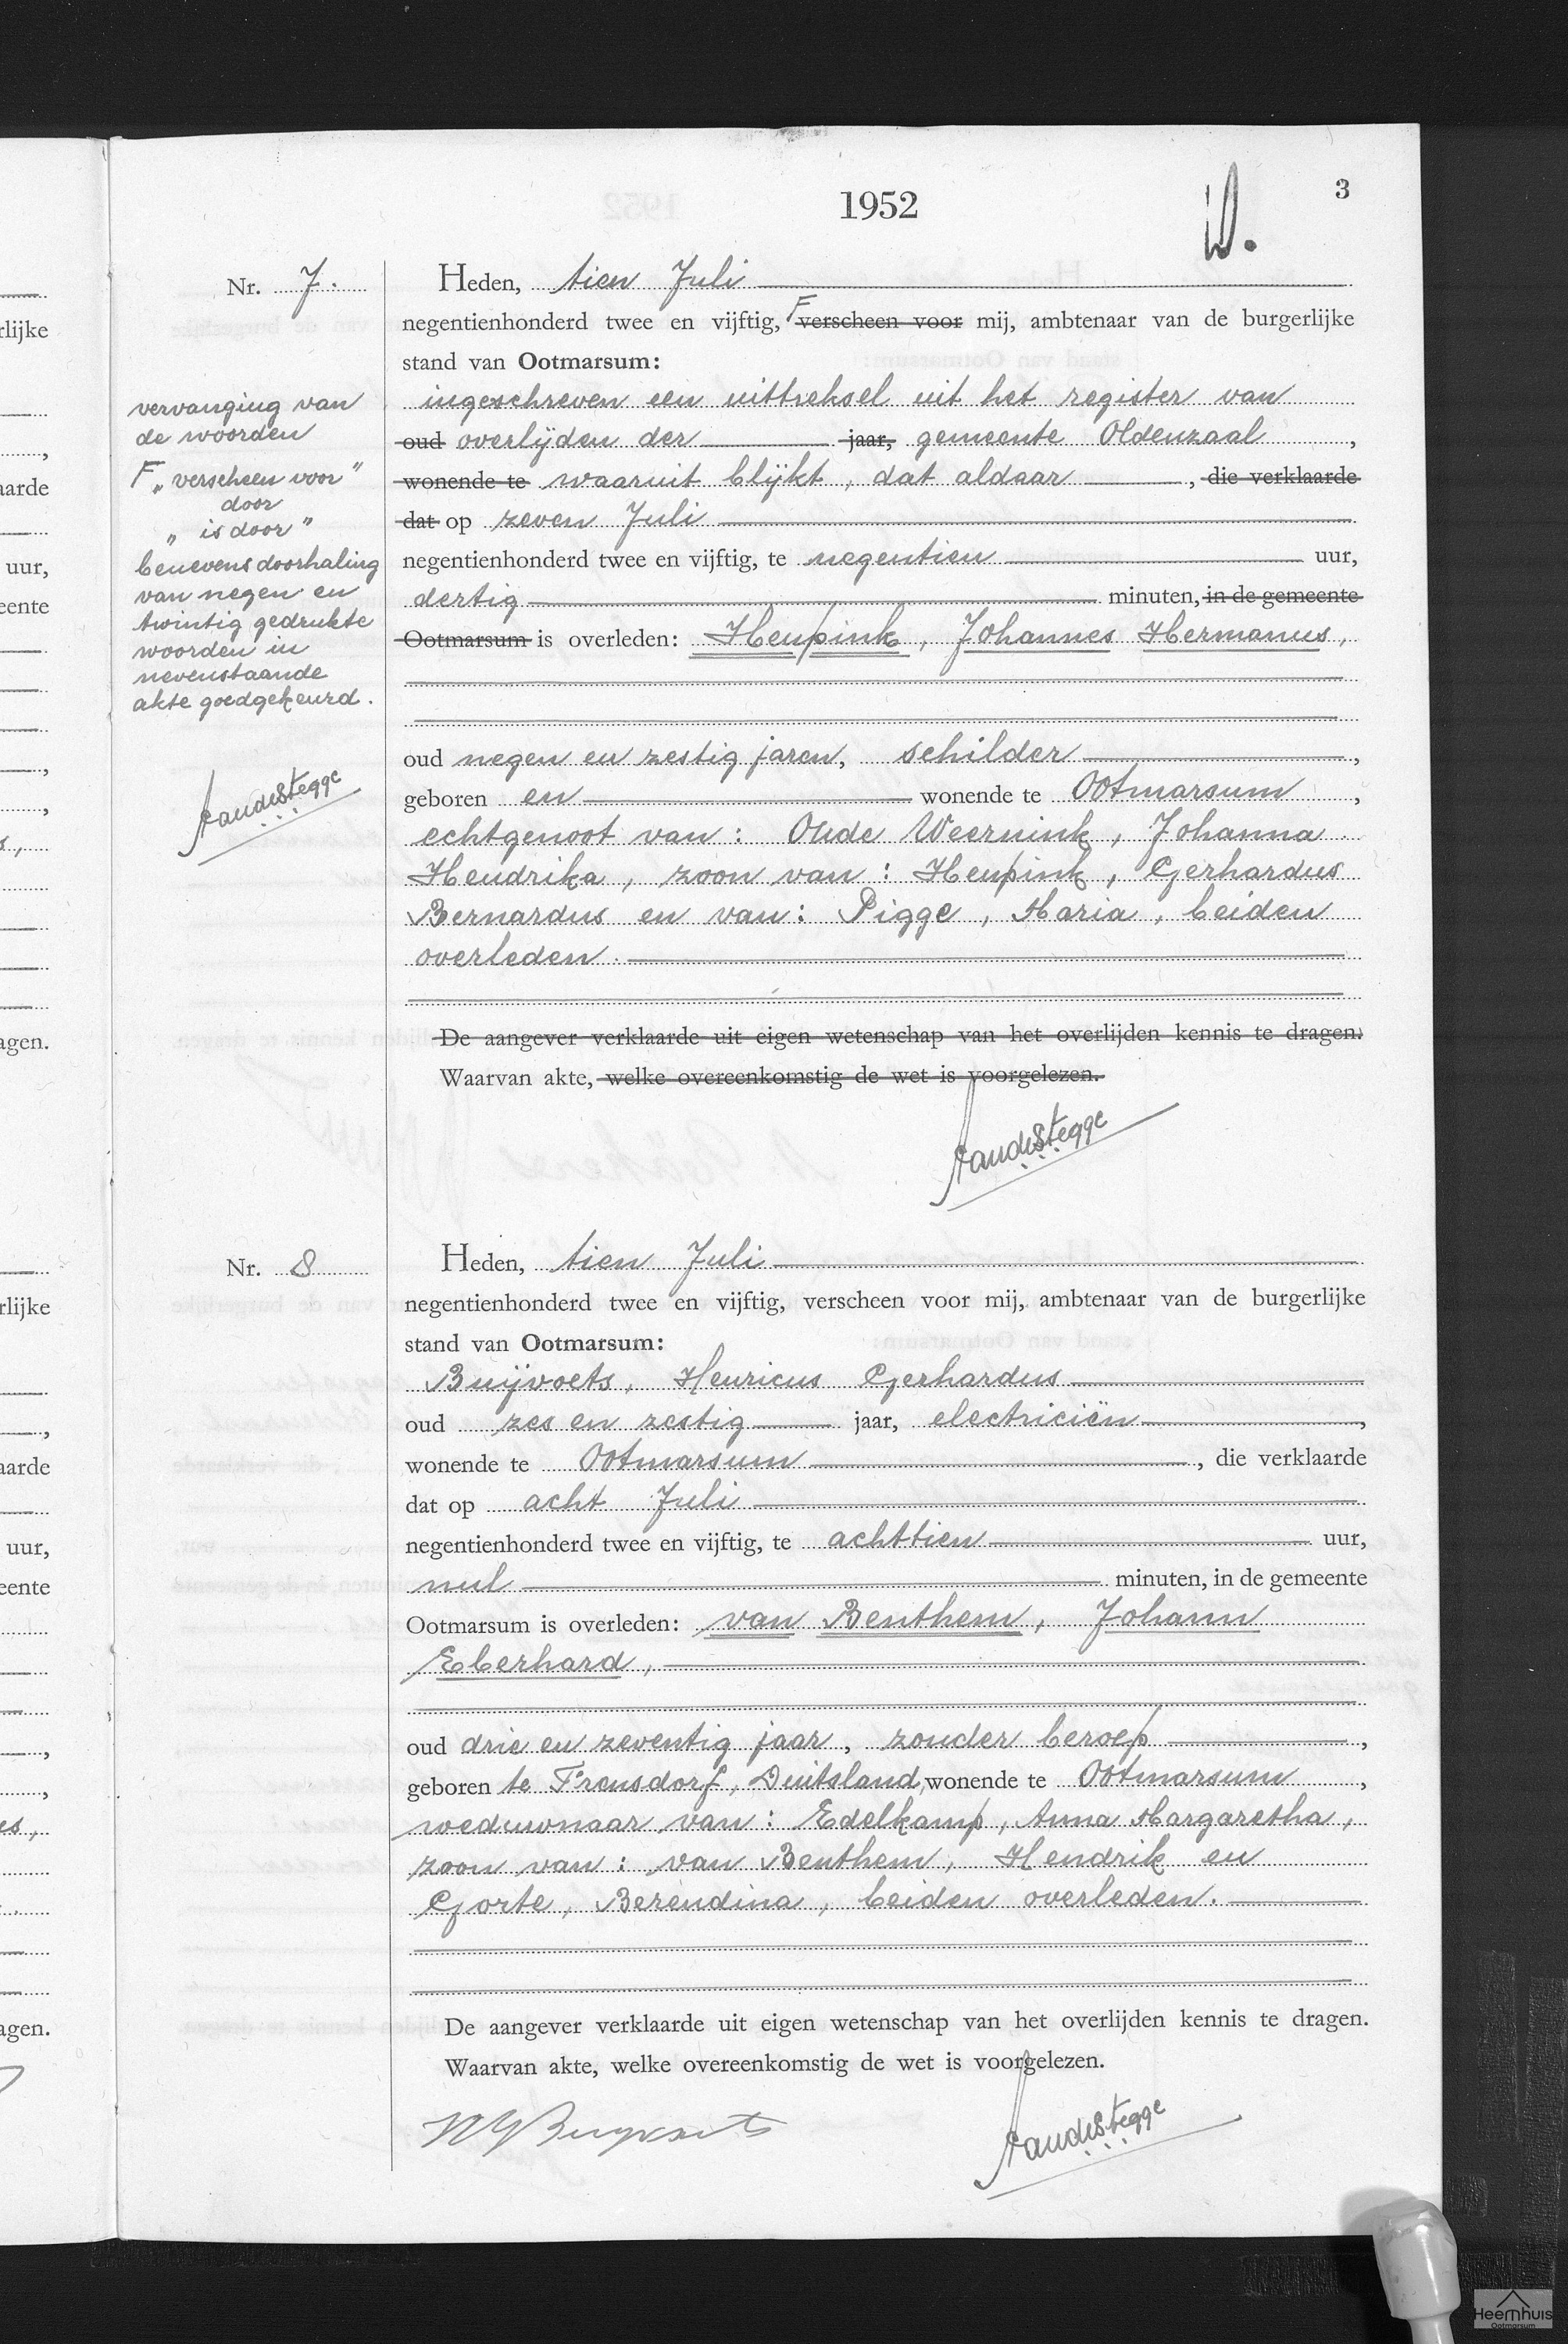 1952
3
Nr. 7.
Heden, tien Juli
negentienhonderd twee en vijftig, F verscheen voor mij, ambtenaar van de burgerlijke
stand van Ootmarsum:
ingeschreven een uittreksel uit het register van
oud overlijden der jaar, gemeente Oldenzaal,
wonende te waaruit blijkt, dat aldaar, die verklaarde
dat op zeven Juli
negentienhonderd twee en vijftig, te negentien uur,
dertig minuten, in de gemeente
Ootmarsum is overleden: Heupink, Johannes Hermanus,
oud negen en zestig jaren, schilder,
geboren en wonende te Ootmarsum,
echtgenoot van: Olde Weernink, Johanna
Hendrika, zoon van: Heupink, Gerhardus
Bernardus en van: Pigge, Maria, beiden
overleden.
De aangever verklaarde uit eigen wetenschap van het overlijden kennis te dragen.
Waarvan akte, welke overeenkomstig de wet is voorgelezen.
vervanging van
de woorden
F „verscheen voor"
door
„is door"
benevens doorhaling
van negen en
twintig gedrukte
woorden in
nevenstaande
akte goedgekeurd.
Nr. 8
Heden, tien Juli
negentienhonderd twee en vijftig, verscheen voor mij, ambtenaar van de burgerlijke
stand van Ootmarsum:
Buijvoets, Henricus Gerhardus
oud zes en zestig jaar, electriciën,
wonende te Ootmarsum, die verklaarde
dat op acht Juli
negentienhonderd twee en vijftig, te achttien uur,
nul minuten, in de gemeente
Ootmarsum is overleden: van Benthem, Johann
Eberhard,
oud drie en zeventig jaar, zonder beroep,
geboren te Frensdorf, Duitsland, wonende te Ootmarsum,
weduwnaar van: Edelkamp, Anna Margaretha,
zoon van: van Benthem, Hendrik en
Gorte, Berendina, beiden overleden.
De aangever verklaarde uit eigen wetenschap van het overlijden kennis te dragen.
Waarvan akte, welke overeenkomstig de wet is voorgelezen.
rlijke
aarde
uur,
eente
agen.
rlijke
aarde
uur,
eente
agen.
Heemhuis
Ootmarsum